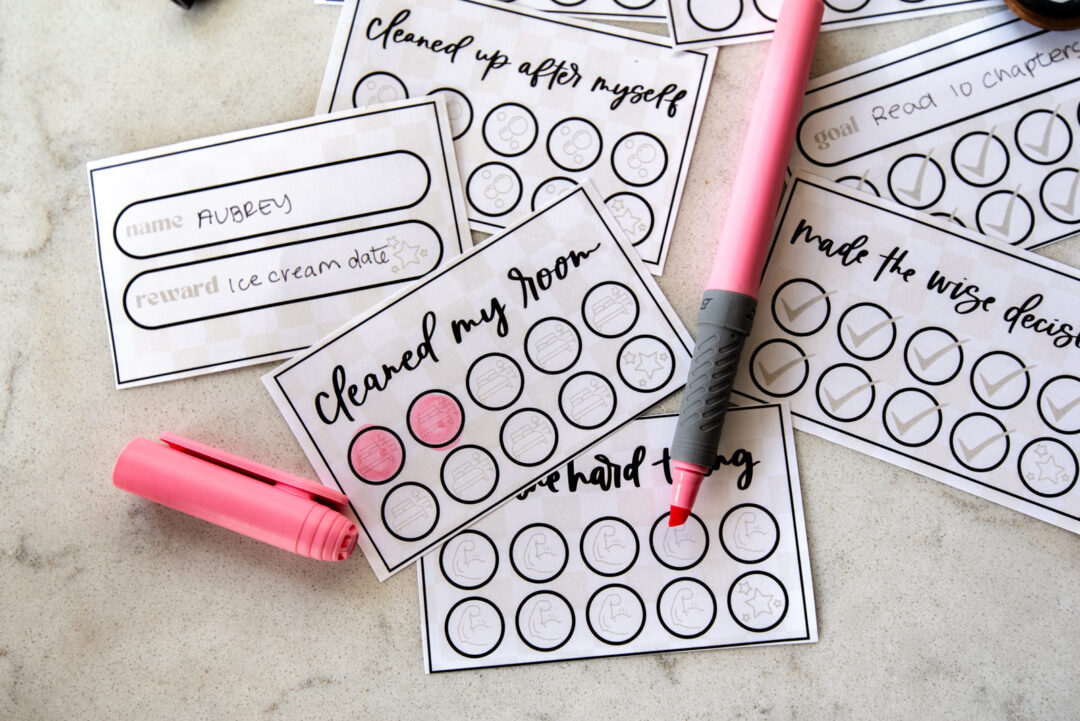 cleaned up after myself
goal Read 10 Chapters
name AUBREY
reward Ice cream date
cleaned my room
made the wise decis
hard